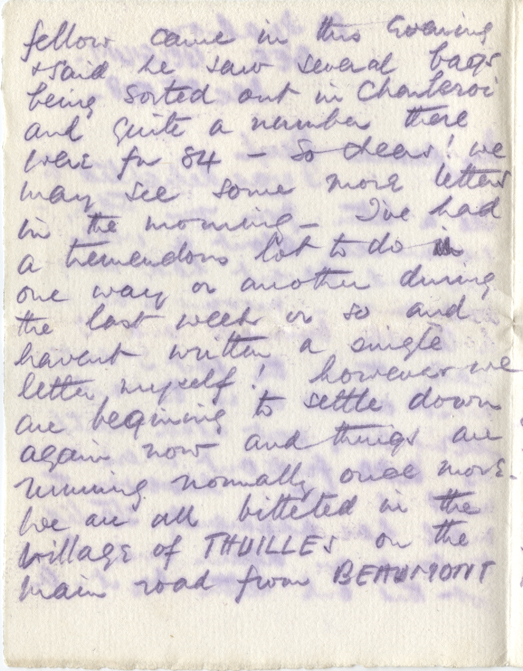 fellow came in this evening
& said he saw several bags
being sorted out in Charleroi
and quite a number there
were for 84 – So dear! we
may see some more letters
in the morning – I've had
a tremendous lot to do in
one way or another during
the last week or so and
havent written a single
letter myself! however we
are begining to settle down
again now and things are
running normally once more.
We are all billeted in the
village of THUILLES on the
main road from BEAUMONT